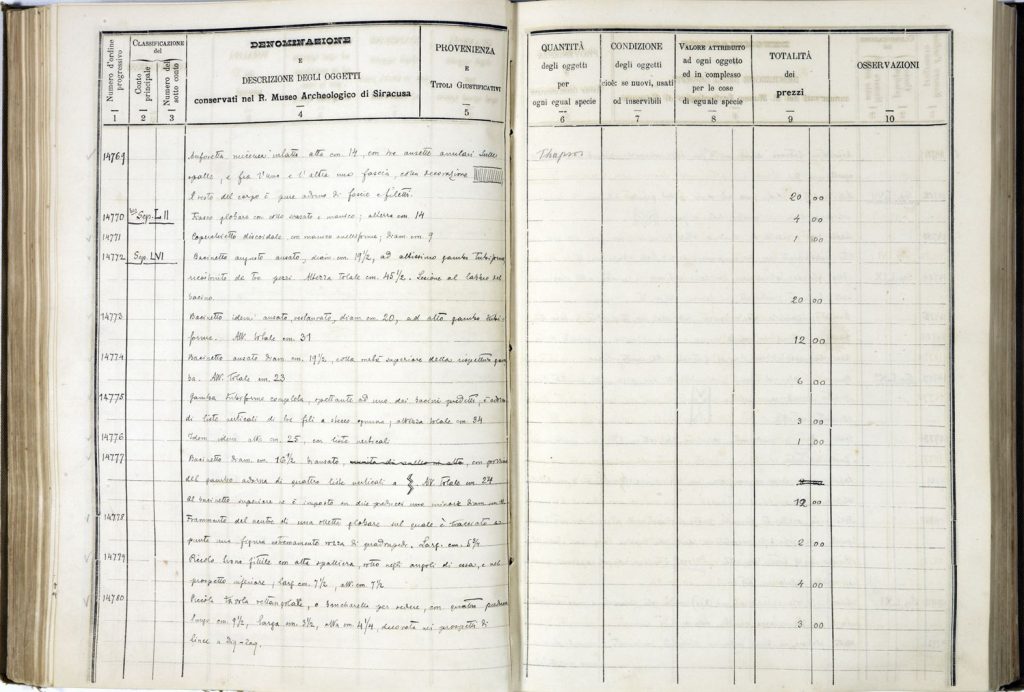 Numero d'ordine progressivo
CLASSIFICAZIONE del
Conto principale
Numero del sotto conto
DENOMINAZIONE
E
DESCRIZIONE DEGLI OGGETTI
conservati nel R. Museo Archeologico di Siracusa
PROVENIENZA
E
TITOLI GIUSTIFICATIVI
QUANTITÀ
degli oggetti
per
ogni egual specie
CONDIZIONE
degli oggetti
cioè: se nuovi, usati
od inservibili
VALORE ATTRIBUITO
ad ogni oggetto
od in complesso
per le cose
di eguale specie
TOTALITÀ
dei
prezzi
OSSERVAZIONI
1 2 3 4 5 6 7 8 9 10
14769 Anforetta micenea alta cm. 14, con tre ansette anulari sulle Thapsos
spalle, e fra l'una e l'altra una fascia, colla decorazione
Il resto del corpo è pure adorno di fascie e filetti. 20 00
14770 Sep. LII Vasco globare con collo ansato e manico; altezza cm. 14 4 00
14771 Coperchietto discoidale, con manico; diam. cm. 9 1 00
14772 Sep. LVI Bacinetto ansato, diam. cm. 19 1/2, ad altissima gamba tubiforme
ricostruito da pezzi. Altezza totale cm. 45 1/2. Lesione al labbro del
bacino. 20 00
14773 Bacinetto idem ansato, restaurato, diam. cm. 20, ad alta gamba tubi-
forme. Alt. totale cm. 31 12 00
14774 Bacinetto ansato diam. cm. 19 1/2, colla metà superiore della rispettiva gam
ba. Alt. totale cm. 23 6 00
14775 Gamba tubiforme completa, spettante ad uno dei bacini predetti, è adorna
di liste verticali di tre fili a stecco; altezza totale cm. 34 3 00
14776 Idem idem alta cm. 25, con liste verticali 1 00
14777 Bacinetto diam. cm. 16 1/2 ansato, con porzione
del gambo adorna di quattro liste verticali a Alt. totale cm. 24
Al bacinetto superiore se è imposto un minore diam. cm. 12 00
14778 Frammento del ventre di una olletta globare sul quale è tracciata a
punta una figura estremamente rozza di quadrupede. Larg. cm. 5 3/4 2 00
14779 Piccolo trono fittile con alta spalliera, rotto negli angoli di essa, e nel
prospetto inferiore; larg. cm. 7 1/2, alt. cm. 7 1/2 4 00
14780 Piccola tavola rettangolare, o bancherella per sedere, con quattro piedini
lungo cm. 9 1/2, larga cm. 3 1/2, alta cm. 4 1/4, decorata nei prospetti di 3 00
linee a zig-zag.